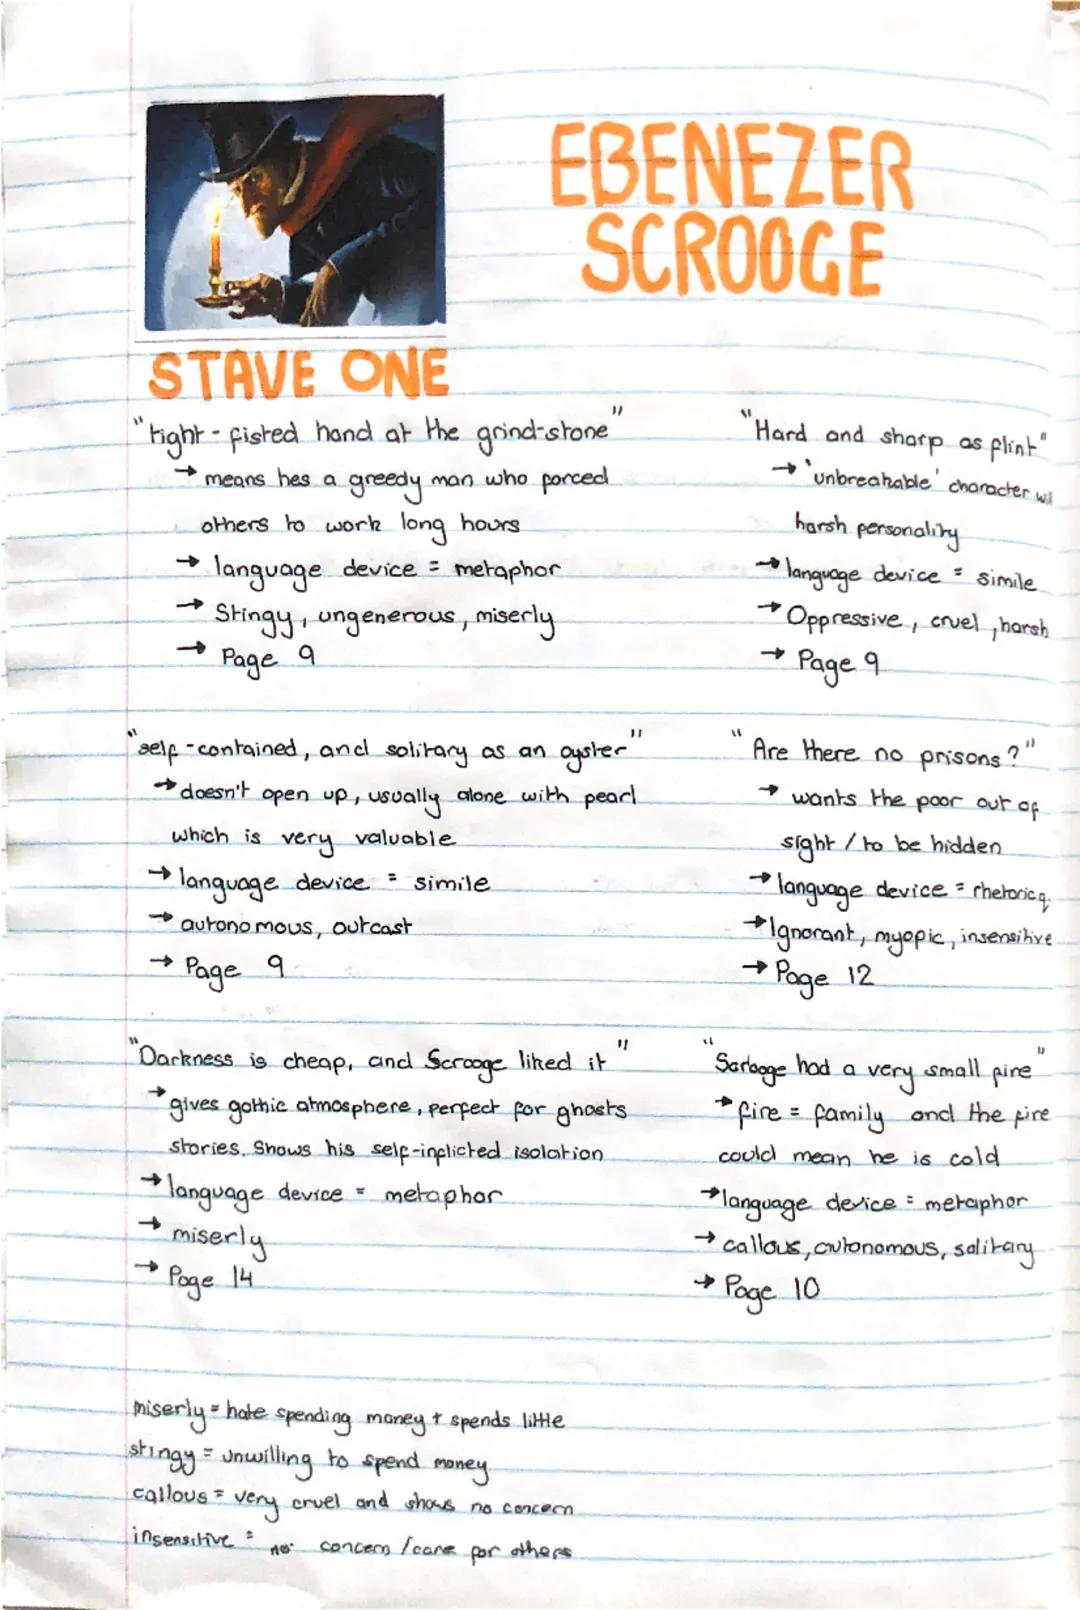 EBENEZER
SCROOGE
STAVE ONE
"tight-fisted hand at the grind-stone"
→ means hes a greedy man who forced
others to work long hours
→ language device = metaphor
→ Stingy, ungenerous, miserly
→ Page 9
"Hard and sharp as flint"
→ 'unbreakable' character w/
harsh personality
→ language device = simile
→ Oppressive, cruel, harsh
→ Page 9
"self-contained, and solitary as an oyster"
→ doesn't open up, usually alone with pearl
which is very valuable
→ language device = simile
→ autonomous, outcast
→ Page 9
"Are there no prisons?"
→ wants the poor out of
sight / to be hidden
→ language device = rhetoric q.
→ Ignorant, myopic, insensitive
→ Page 12
"Darkness is cheap, and Scrooge liked it"
→ gives gothic atmosphere, perfect for ghosts
stories. Shows his self-inflicted isolation
→ language device = metaphor
→ miserly
→ Page 14
had a very small fire"
→ fire = family and the fire
could mean he is cold
→ language device = metaphor
→ callous, autonomous, solitary
→ Page 10
miserly = hate spending money + spends little
stingy = unwilling to spend money
callous = very cruel and shows no concern
insensitive = no concern / care for others